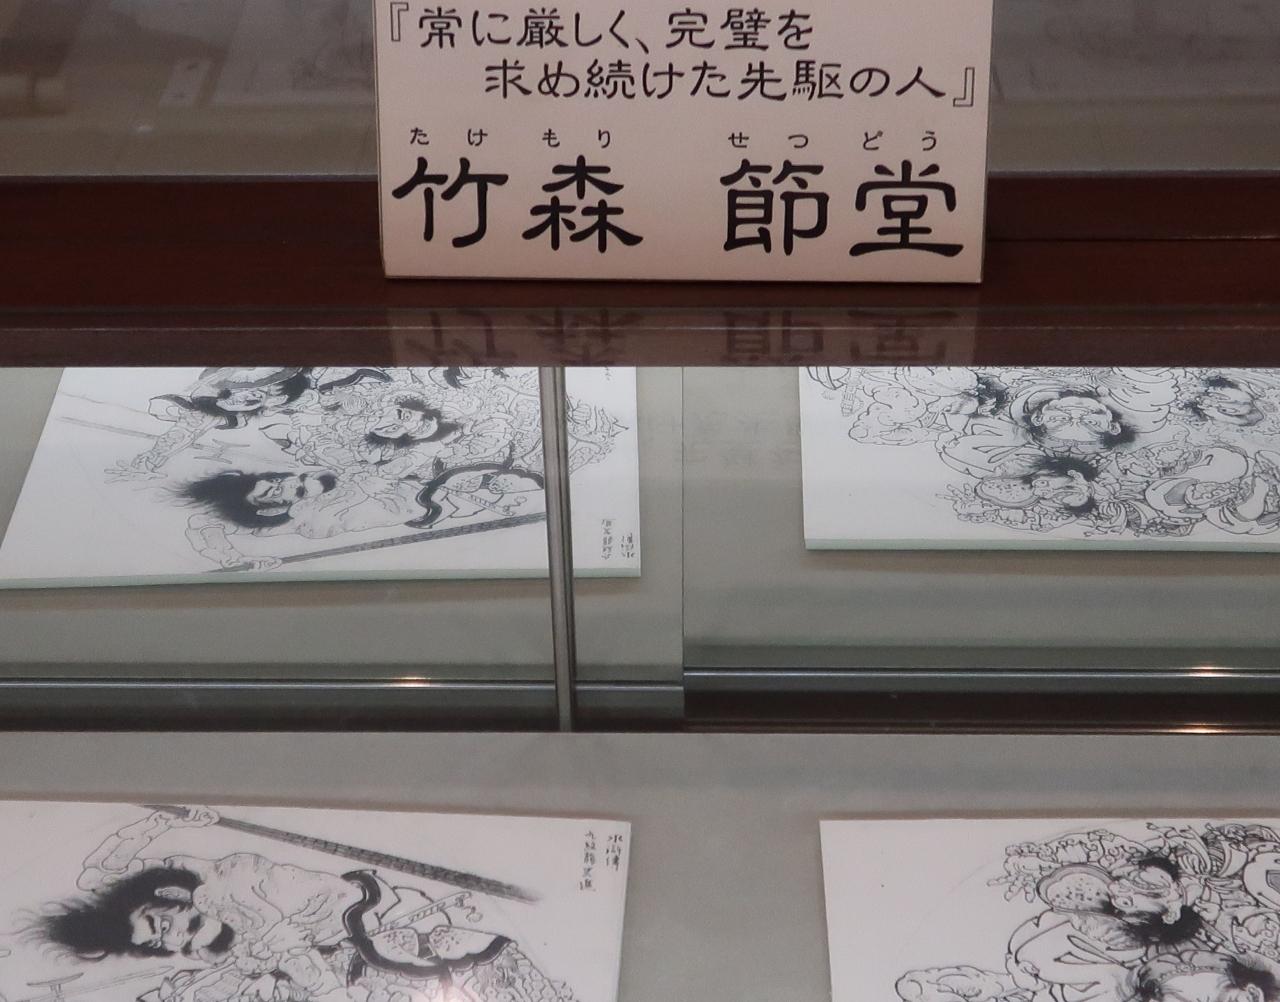 『常に厳しく、完璧を
求め続けた先駆の人』
たけ もり せつ どう
竹森 節堂
水滸傳
九紋龍史進